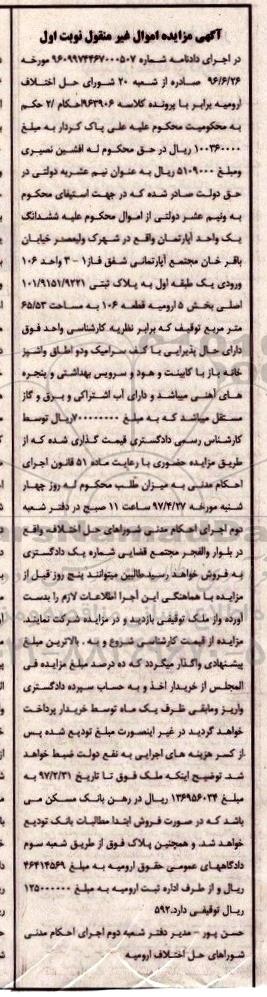 آگهی مزایده اموال غیر منقول نوبت اول
در اجرای دادنامه شماره ۹۶۰۹۹۷۴۴۶۷۰۰۰۵۰۷ مورخه
۹۶/۶/۲۶ صادره از شعبه ۲۰ شورای حل اختلاف
ارومیه برابر با پرونده کلاسه ۹۶۳۹۰۶احکام /۲ حکم
به محکومیت محکوم علیه علی پاک کردار به مبلغ
۱۰۰۳۶۰۰۰۰ ریال در حق محکوم له افشین نصیری
ومبلغ ۵۱۰۹۰۰۰ ریال به عنوان نیم عشریه دولتی در
حق دولت صادر شده که در جهت استیفای محکوم
به ونیم عشر دولتی از اموال محکوم علیه ششدانگ
یک واحد آپارتمان واقع در شهرک ولیعصر خیابان
باقر خان مجتمع آپارتمانی شفق فاز۱ - ۳ واحد ۱۰۶
ورودی یک طبقه اول به پلاک ثبتی ۱۰۱/۹۱۵۱/۹۲۲۱
اصلی بخش ۵ ارومیه قطعه ۱۰۶ به مساحت ۶۵/۵۳
متر مربع توقیف که برابر نظریه کارشناسی واحد فوق
دارای حال پذیرایی با کف سرامیک ودو اطاق واشپز
خانه باز با کابینت و هود و سرویس بهداشتی و پنجره
های آهنی میباشد و دارای آب اشتراکی و برق و گاز
مستقل میباشد که به مبلغ ۷۰۰۰۰۰۰۰۰ریال توسط
کارشناس رسمی دادگستری قیمت گذاری شده که از
طریق مزایده حضوری با رعایت ماده ۵۱ قانون اجرای
احکام مدنی به میزان طلب محکوم له روز چهار
شنبه مورخه ۹۷/۴/۲۷ ساعت ۱۱ صبح در دفتر شعبه
دوم اجرای احکام مدنی شوراهای حل اختلاف واقع
در بلوار والفجر مجتمع قضایی شماره یک دادگستری
به فروش خواهد رسیدطالبین میتوانند پنج روز قبل از
مزایده با هماهنگی این اجرا اطلاعات لازم را بدست
آورده واز ملک توقیفی بازدید و در مزایده شرکت نمایند.
مزایده از قیمت کارشناسی شروع و به . بالاترین مبلغ
پیشنهادی واگذار میگردد که ده درصد مبلغ مزایده فی
المجلس از خریدار اخذ و به حساب سپرده دادگستری
واریز ومابقی ظرف یک ماه توسط خریدار پرداخت
خواهد گردید در غیر اینصورت مبلغ تودیع شده پس
از کسر هزینه های اجرایی به نفع دولت ضبط خواهد
شد توضیح اینکه ملک فوق تا تاریخ ۹۷/۲/۳۱ به
مبلغ ۱۳۶۹۵۶۰۳۴ ریال در رهن بانک مسکن می
باشد که در صورت فروش ابتدا مطالبات بانک تودیع
خواهد شد. و همچنین پلاک فوق از طریق شعبه سوم
دادگاههای عمومی حقوق ارومیه به مبلغ ۴۶۴۱۴۵۶۹
ریال و از طرف اداره ثبت ارومیه به مبلغ ۱۲۵۰۰۰۰۰۰
ریال توقیفی دارد.۵۹۲
حسن پور - مدیر دفتر شعبه دوم اجرای احکام مدنی
شوراهای حل اختلاف ارومیه